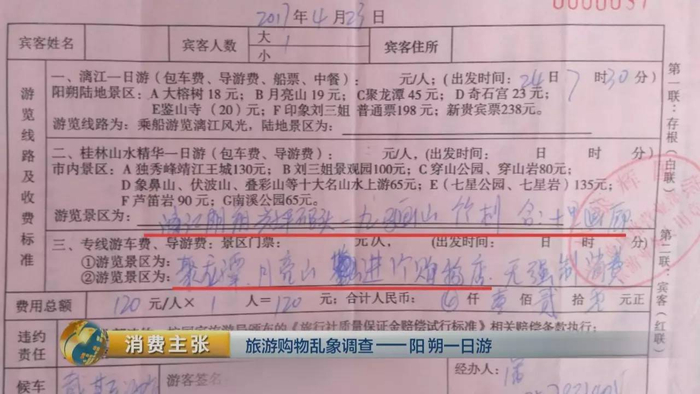 0000037
2017年4月23日
宾客姓名 宾客人数 大 1 小 宾客住所
游览线路及收费标准
一、漓江一日游(包车费、导游费、船票、中餐): 元/人,(出发时间:24日7时30分)
阳朔陆地景区:A大榕树18元;B月亮山19元;C聚龙潭45元;D奇石宫23元;
E鉴山寺(20)元;F印象刘三姐 普通票198元;新贵宾票238元。
游览线路为:乘船游览漓江风光,陆地景区为:
二、桂林山水精华一日游(包车费、导游费): 元/人,(出发时间: 日 时 分)
市内景区:A独秀峰靖江王城130元;B刘三姐景观园100元;C穿山公园、穿山岩80元;
D象鼻山、伏波山、叠彩山等十大名山水上游65元;E(七星公园、七星岩)135元;
F芦笛岩90元;G南溪公园65元。
游览景区为:漓江 码头一九马画山 竹
三、专线游车费、导游费;景区门票: 元/人,(出发时间: 日 时 分)
①游览景区为:聚龙潭 月亮山 进1个购物店 无强制消费
②游览景区为:
费用总额 120元/人×1人=120元;合计人民币: 仟壹佰贰拾 元正
违约责任 《旅行社质量保证金赔偿试行标准》相关赔偿条款执行。
候车 游客签名 经办人:
第一联:存根(白联)
第二联:宾客(红联)
消费主张 旅游购物乱象调查——阳朔一日游